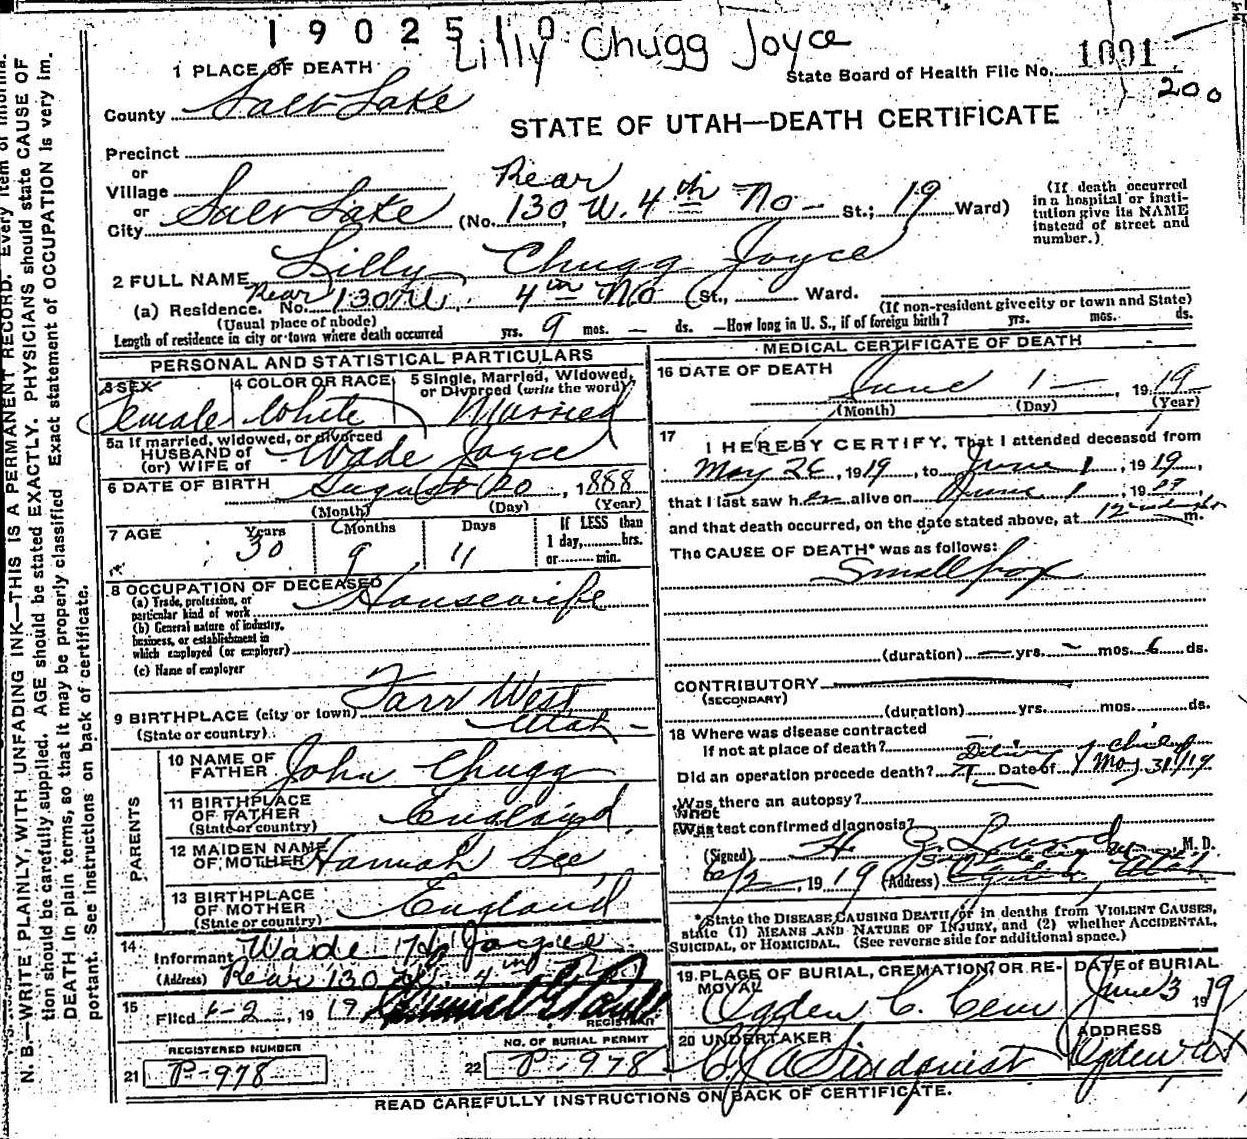 1902510
Lilly Chugg Joyce
State Board of Health File No. 1091
200
1 PLACE OF DEATH
County Salt Lake
STATE OF UTAH—DEATH CERTIFICATE
Precinct
or
Village
or
City Salt Lake (No. Rear 130 W. 4th No — St.; 19 Ward)
(If death occurred in a hospital or insti-
tution give its NAME
instead of street and
number.)
2 FULL NAME Lilly Chugg Joyce
(a) Residence. No. Rear 130 W. 4th No (St., Ward.
(Usual place of abode)
(If non-resident give city or town and State)
Length of residence in city or town where death occurred yrs. 9 mos. — ds. —How long in U. S., if of foreign birth? yrs. mos. ds.
PERSONAL AND STATISTICAL PARTICULARS
3 SEX
Female
4 COLOR OR RACE
White
5 Single, Married, Widowed,
or Divorced (write the word)
Married
5a If married, widowed, or divorced
HUSBAND of
(or) WIFE of Wade Joyce
6 DATE OF BIRTH August 20, 1888
(Month) (Day) (Year)
7 AGE
Years Months Days
30 9 11
If LESS than
1 day, hrs.
or min.
8 OCCUPATION OF DECEASED
(a) Trade, profession, or
particular kind of work Housewife
(b) General nature of industry,
business, or establishment in
which employed (or employer)
(c) Name of employer
9 BIRTHPLACE (city or town) Farr West
(State or country) Utah —
PARENTS
10 NAME OF
FATHER John Chugg
11 BIRTHPLACE
OF FATHER
(State or country) England
12 MAIDEN NAME
OF MOTHER Hannah Lee
13 BIRTHPLACE
OF MOTHER
(State or country) England
14
Informant Wade H Joyce
(Address) Rear 130 W. 4th No
15
Filed 6-2, 1919
REGISTRAR
REGISTERED NUMBER
21 P-978
NO. OF BURIAL PERMIT
22 P-978
MEDICAL CERTIFICATE OF DEATH
16 DATE OF DEATH
June 1 —, 1919
(Month) (Day) (Year)
17
I HEREBY CERTIFY, That I attended deceased from
May 26, 1919, to June 1, 1919,
that I last saw her alive on June 1, 1919
and that death occurred, on the date stated above, at 12 m.
The CAUSE OF DEATH* was as follows:
Smallpox
(duration) — yrs. — mos. 6 ds.
CONTRIBUTORY
(SECONDARY)
(duration) yrs. mos. ds.
18 Where was disease contracted
if not at place of death? —
Did an operation precede death? Date of Delivery of child May 31/19
Was there an autopsy?
What
test confirmed diagnosis?
(Signed) H. M. D.
6/2, 1919 (Address) Ogden, Utah
*State the DISEASE CAUSING DEATH, or in deaths from VIOLENT CAUSES,
state (1) MEANS AND NATURE OF INJURY, and (2) whether ACCIDENTAL,
SUICIDAL, or HOMICIDAL. (See reverse side for additional space.)
19 PLACE OF BURIAL, CREMATION, OR RE-
MOVAL
Ogden C. Cem
DATE of BURIAL
June 3 1919
20 UNDERTAKER
Lindquist
ADDRESS
Ogden Ut
READ CAREFULLY INSTRUCTIONS ON BACK OF CERTIFICATE.
N. B.—WRITE PLAINLY, WITH UNFADING INK—THIS IS A PERMANENT RECORD. Every item of informa-
tion should be carefully supplied. AGE should be stated EXACTLY. PHYSICIANS should state CAUSE OF
DEATH in plain terms, so that it may be properly classified. Exact statement of OCCUPATION is very im-
portant. See instructions on back of certificate.